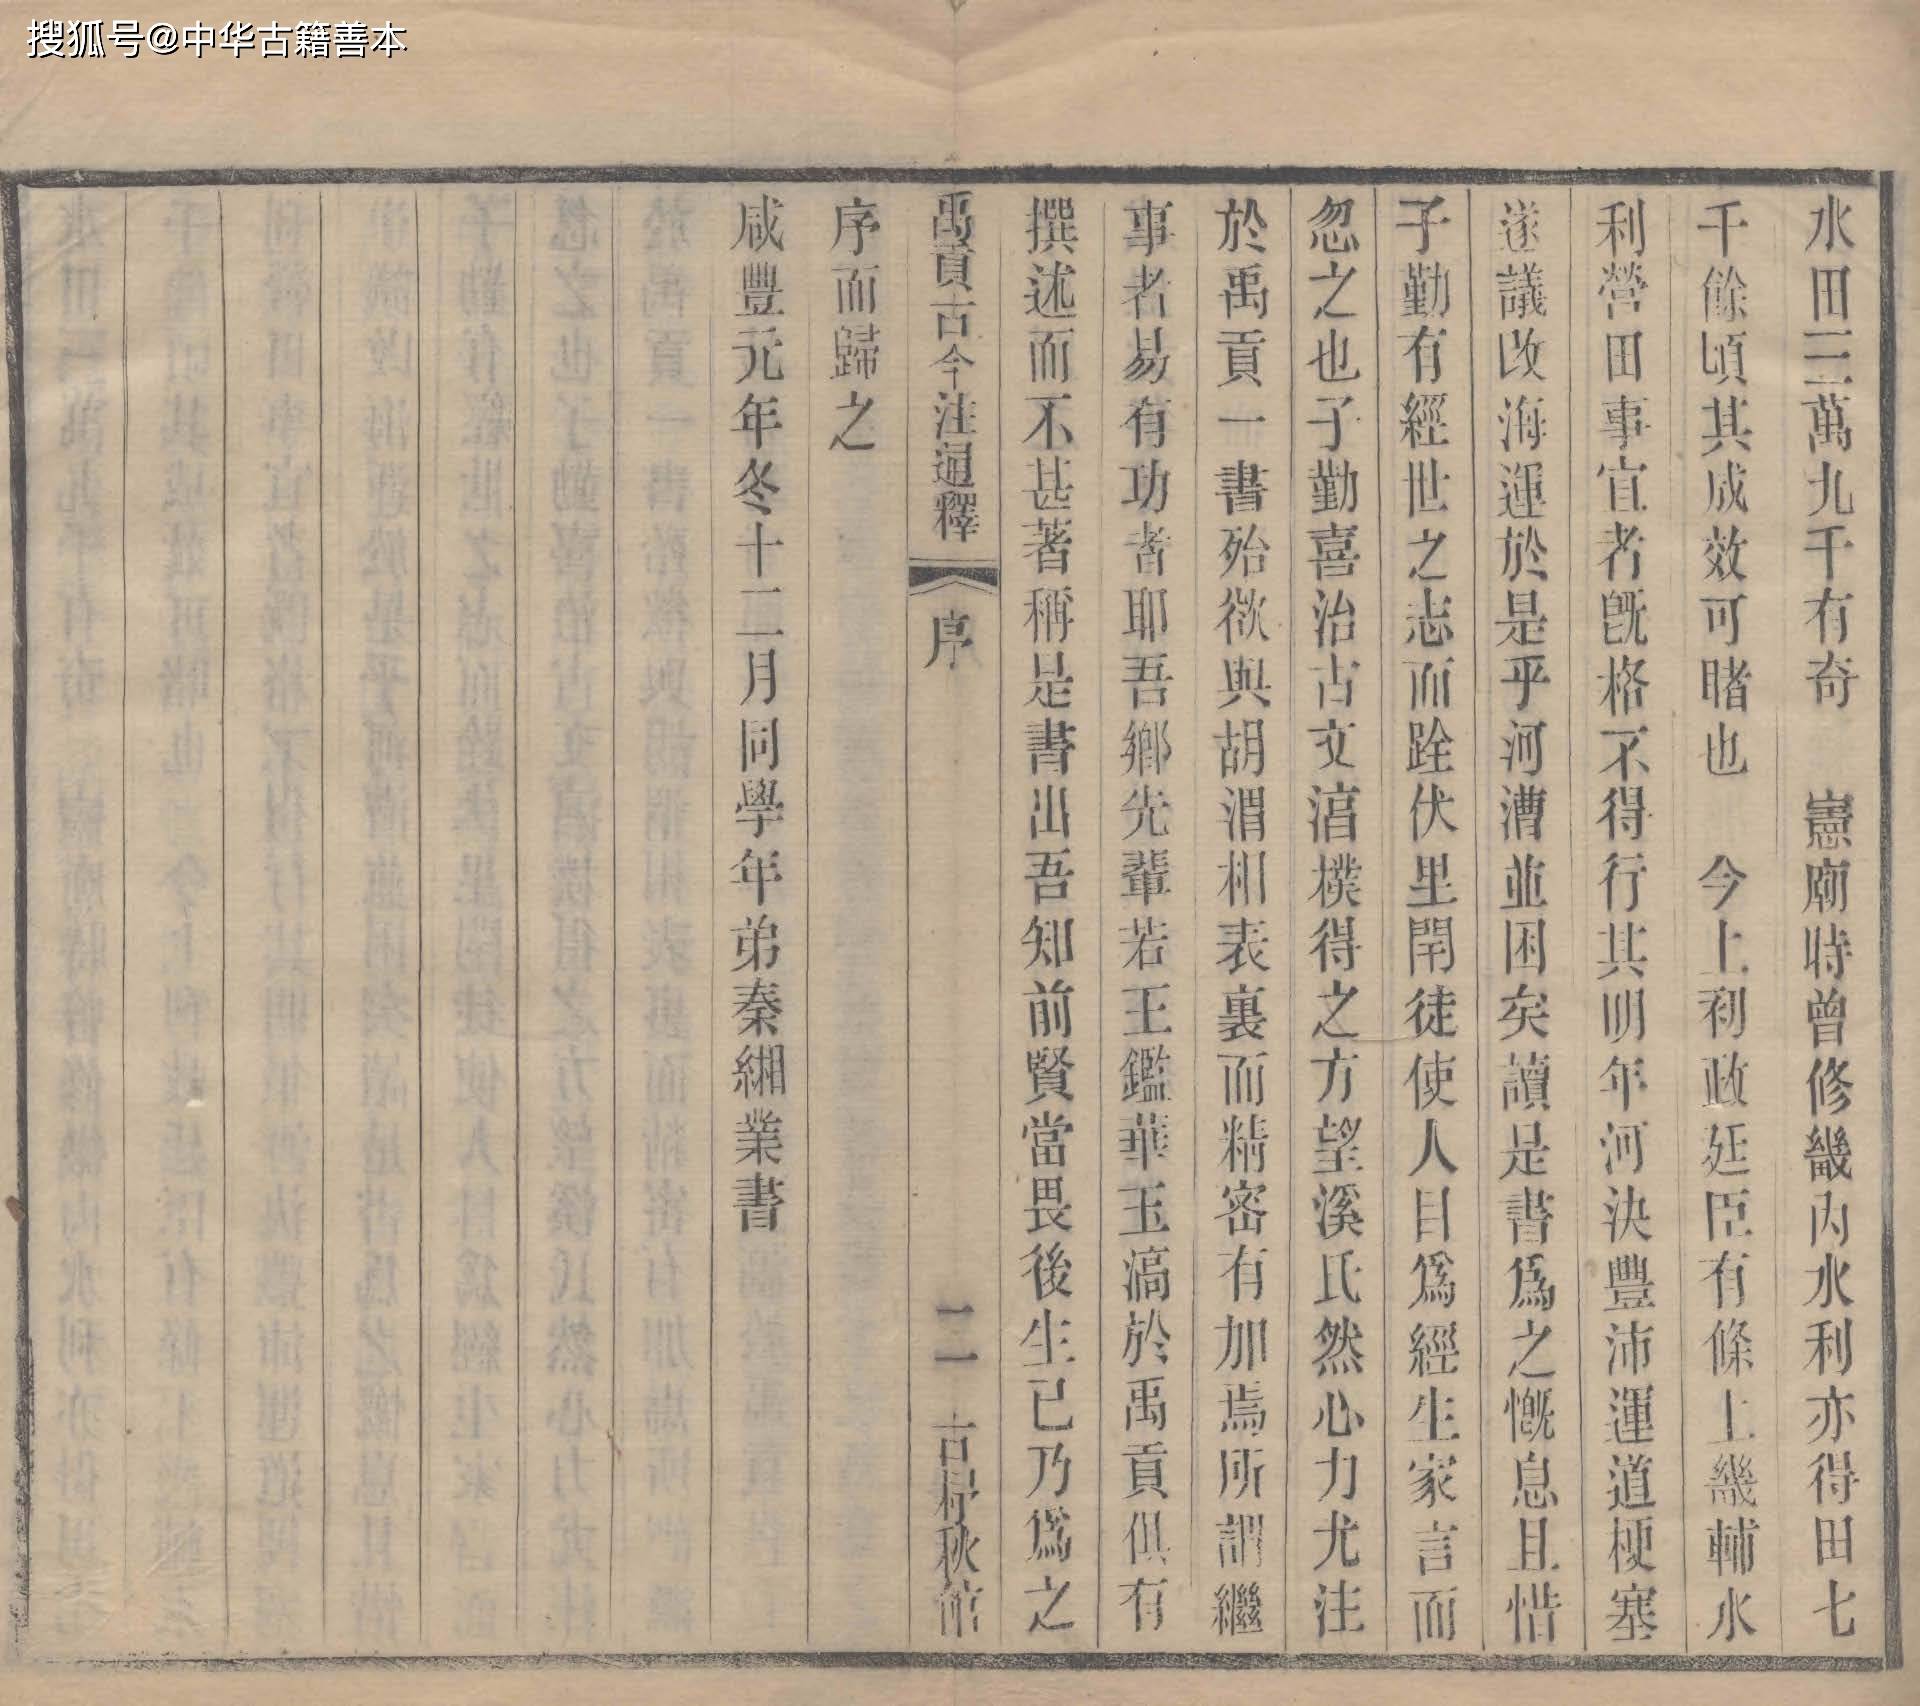 搜狐号@中华古籍善本
水田三萬九千有奇　憲廟時曾修畿內水利亦得田七
千餘頃其成效可睹也　今上初政廷臣有條上畿輔水
利營田事宜者旣格不得行其明年河決豐沛運道梗塞
遂議改海運於是乎河漕並困矣讀是書爲之慨息且惜
子勤有經世之志而跧伏里閈徒使人目爲經生家言而
忽之也子勤喜治古文淯樸得之方望溪氏然心力尤注
於禹貢一書殆欲與胡渭相表裏而精密有加焉所謂繼
事者易有功者耶吾鄉先輩若王鑑華玉澫於禹貢俱有
撰述而不甚著稱是書出吾知前賢當畏後生已乃爲之
禹貢古今注通釋　序　二　古杼秋館
序而歸之
咸豐元年冬十二月同學年弟秦緗業書